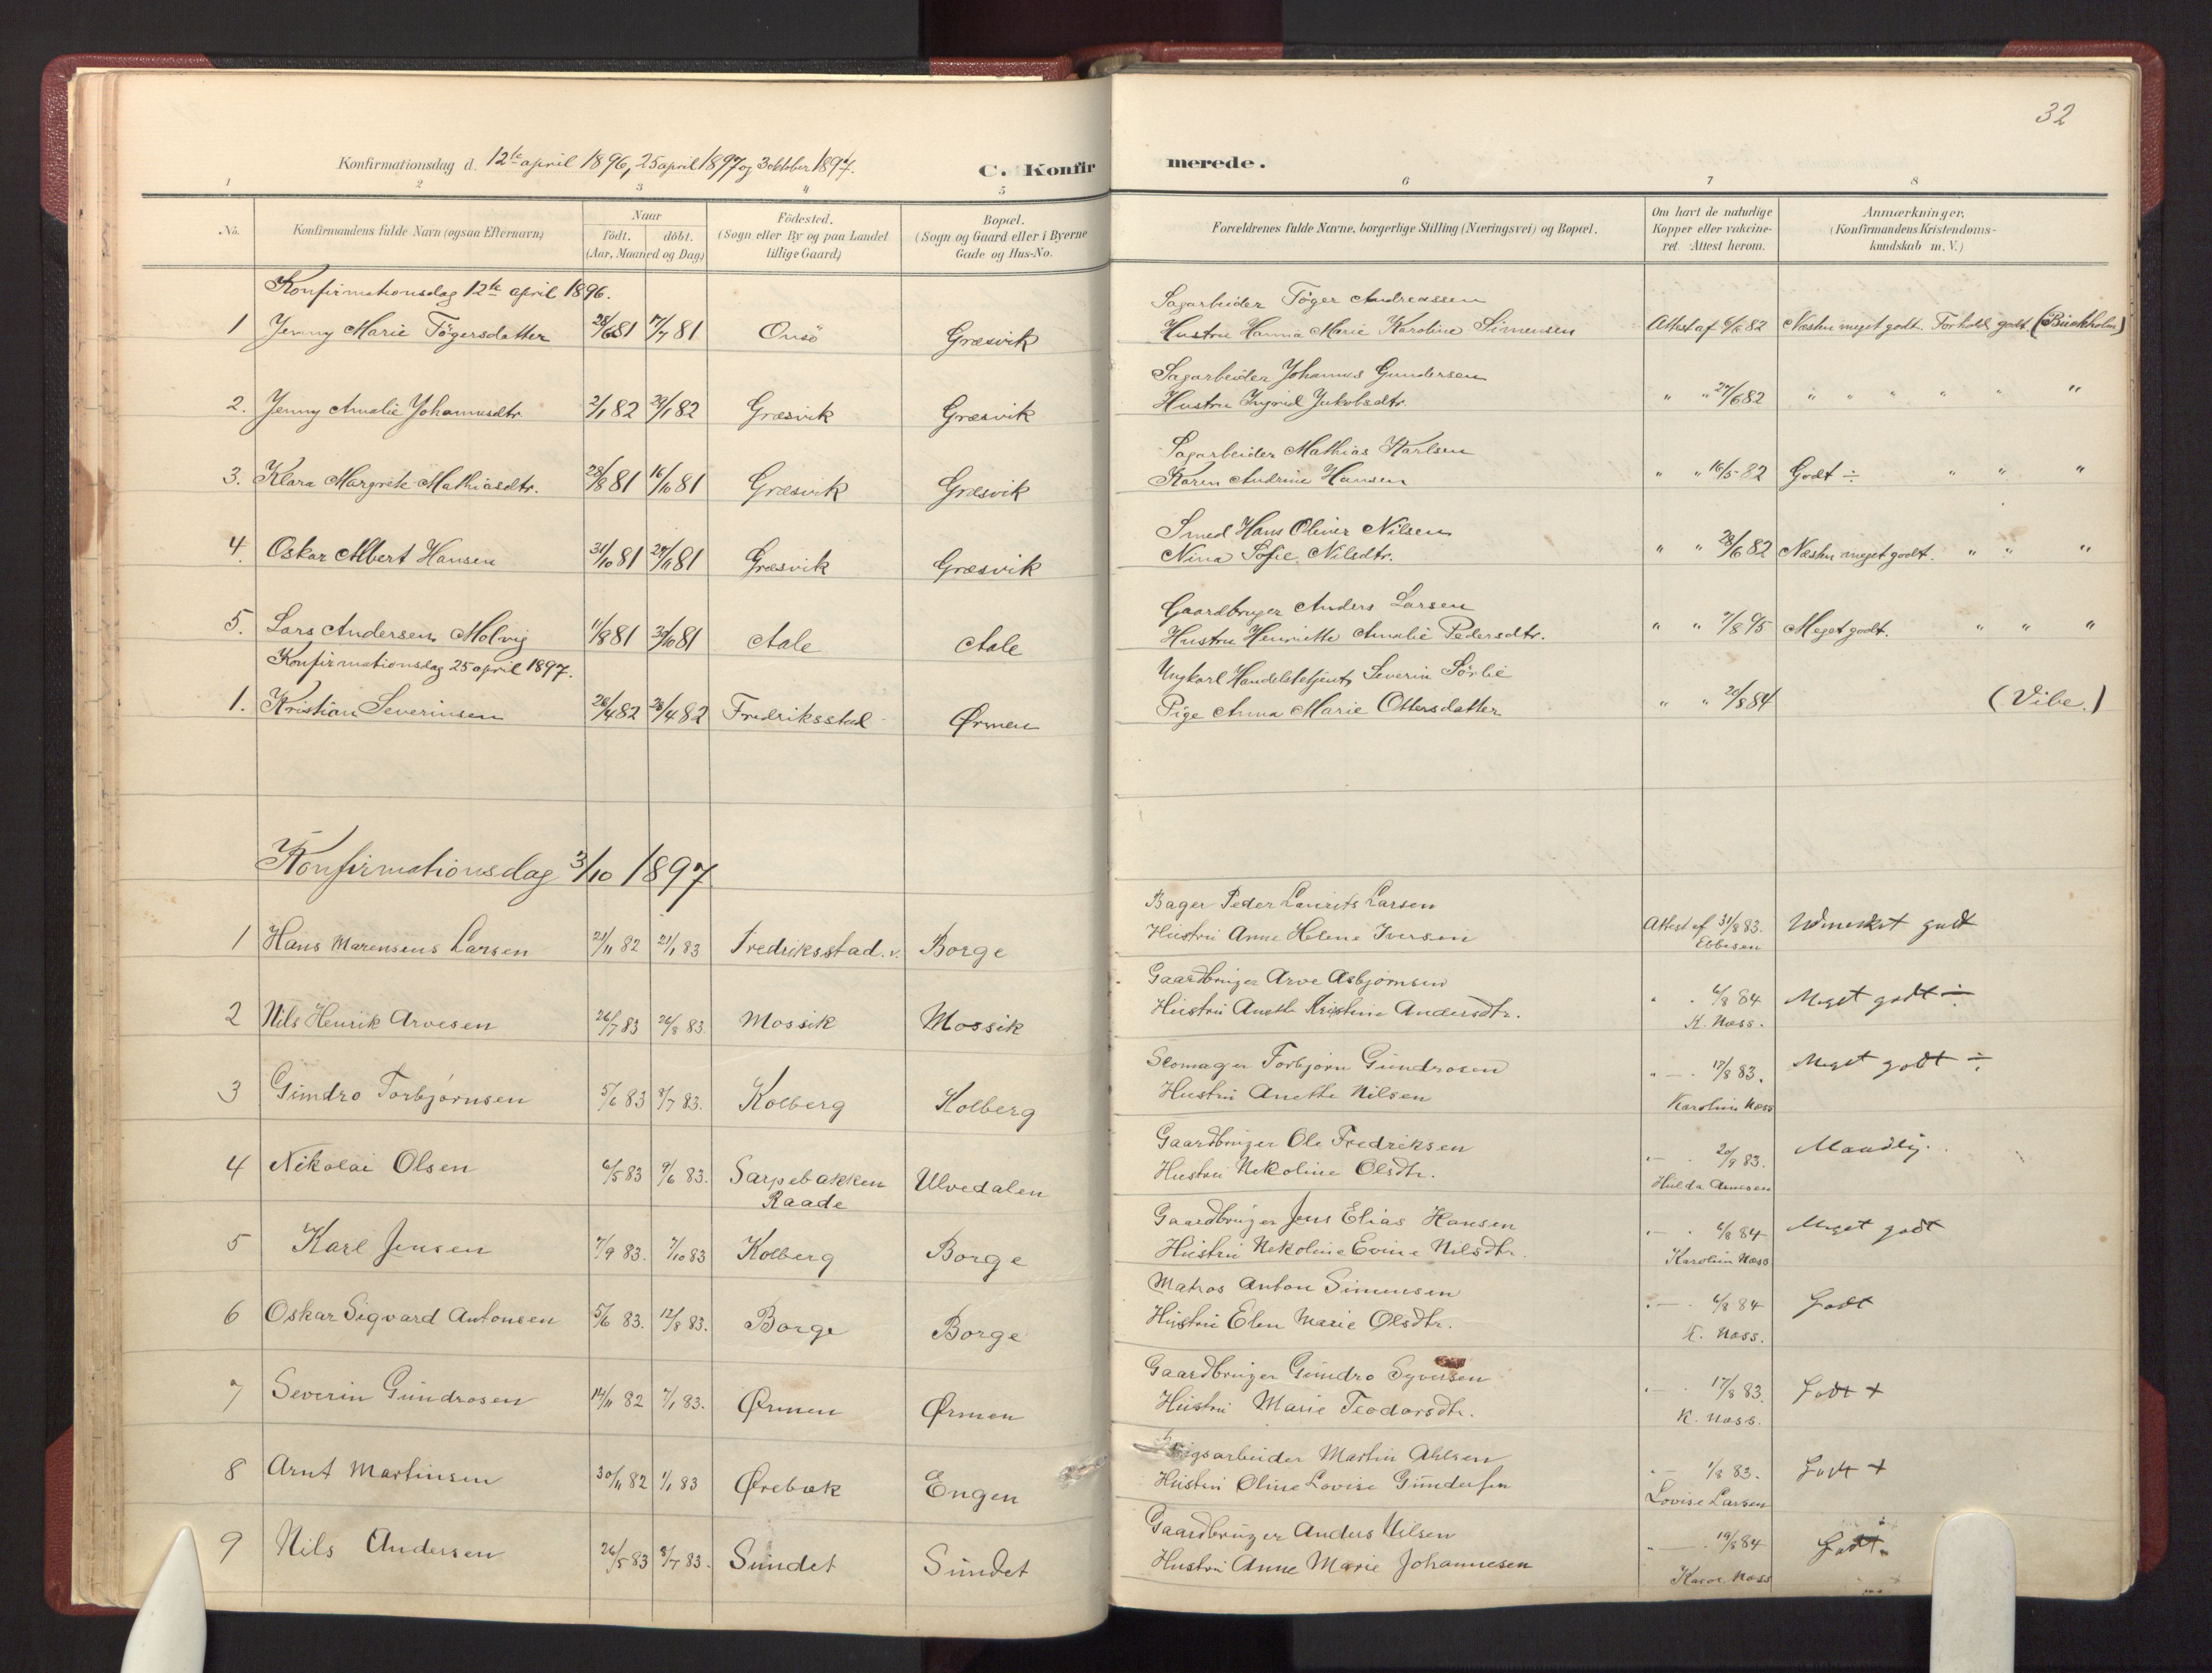 32
Konfirmationsdag d. 12te april 1896, 25 april 1897 og 3 oktober 1897.
C. Konfirmerede.
1 2 3 4 5 6 7 8
No.
Konfirmandens fulde Navn (ogsaa Efternavn)
Naar
födt. döbt.
(Aar, Maaned og Dag)
Födested.
(Sogn eller By og paa Landet
tillige Gaard)
Bopæl.
(Sogn og Gaard eller i Byerne
Gade og Hus-No.
Forældrenes fulde Navne, borgerlige Stilling (Næringsvei) og Bopæl.
Om havt de naturlige
Kopper eller vakcine-
ret. Attest herom.
Anmærkninger,
(Konfirmandens Kristendoms-
kundskab m. V.)
Konfirmationsdag 12te april 1896.
Sagarbeider Töger Andreassen
1 Jenny Marie Tögersdatter 28/6 81 17/7 81 Onsö Græsvik Hustru Hanna Marie Karoline Simensen Attest af 6/6 82 Næsten meget godt. Forhold godt. (Buckholm)
Sagarbeider Johannes Gundersen
2. Jenny Amalie Johannesdtr. 2/1 82 29/1 82 Græsvik Græsvik Hustru Ingrid Jakobsdtr. " " 27/6 82 " " " " " "
Sagarbeider Mathias Karlsen
3. Klara Margrete Mathiasdtr. 28/8 81 16/10 81 Græsvik Græsvik Karen Andrine Hansen " " 16/5 82 Godt ÷ " " "
Smed Hans Oliver Nilsen
4. Oskar Albert Hansen 31/10 81 27/11 81 Græsvik Græsvik Nina Sofie Nilsdtr. " " 28/6 82 Næsten meget godt. " " "
Gaardbruger Anders Larsen
5. Lars Andersen Molvig 11/8 81 30/10 81 Aale Aale Hustru Henriette Amalie Pedersdtr. " " 7/8 95 Meget godt. " " "
Konfirmationsdag 25 april 1897.
Ungkarl Handelsbetjent Severin Sörlie
1. Kristian Severinsen 26/4 82 28/4 82 Fredriksstad Ørmen Pige Anna Marie Ottersdatter " " 20/8 84 (Vibe.)
Konfirmationsdag 3/10 1897
Bager Peder Laurits Larsen
1 Hans Marensens Larsen 21/11 82 21/1 83 Fredriksstad. v. Borge Hustru Anne Helene Iversen Attest af 31/8 83. Udmerket godt
Ebbesen
Gaardbruger Arve Asbjørnsen
2 Nils Henrik Arvesen 26/7 83 26/8 83 Mossik Mossik Hustru Anette Kristine Andersdtr. " " 6/8 84 Meget godt ÷
K. Næss.
Skomager Torbjørn Gundrosen
3 Gundro Torbjørnsen 5/6 83 8/7 83. Kolberg Kolberg Hustru Anette Nilsen " — . 17/8 83. Meget godt ÷
Karolin Næss
Gaardbruger Ole Fredriksen
4 Nikolai Olsen 6/5 83 9/6 83. Sarpebakken Ulvedalen Hustru Nekoline Olsdtr. " — . 20/9 83. Maadlig.
Raade Hulda Arnesen
Gaardbruger Jens Elias Hansen
5 Karl Jensen 7/9 83. 7/10 83 Kolberg Borge Hustru Nekoline Evine Nilsdtr. " — . 6/8 84 Meget godt
Karolin Næss
Matros Anton Simensen
6 Oskar Sigvard Antonsen 5/6 83. 12/8 83. Borge Borge Hustru Elen Marie Olsdtr. " — . 6/8 84 Godt
K. Næss.
Gaardbruger Gundro Syversen
7 Severin Gundrosen 14/11 82 7/1 83. Ørmen Ørmen Hustru Marie Teodorsdtr. " — . 17/8 83 Godt +
K. Næss.
Martin Ahlsen
8 Arnt Martinsen 30/11 82 1/1 83 Ørebæk Engen Hustru Oline Lovise Gundersen " — 1/8 83. Godt +
Lovise Larsen
Gaardbruger Anders Nilsen
9 Nils Andersen 26/5 83 8/7 83. Sundet Sundet Hustru Anne Marie Johannesen " — . 19/8 84 Godt.
Karol Næss